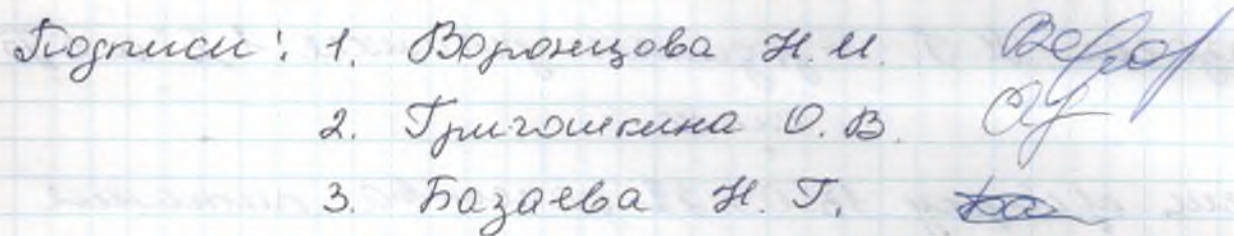 Подписи: 1. Воронцова Н. И.
2. Григошкина О. В.
3. Базаева Н. Г.